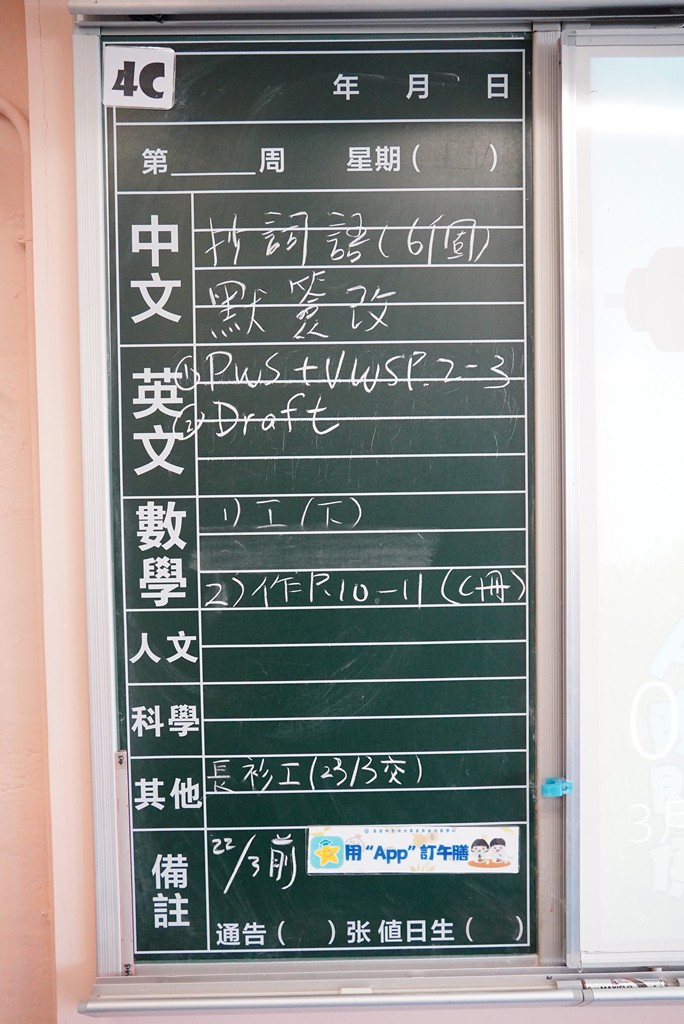 4C
年 月 日
第______周 星期( )
中文
抄詞語(6個)
默簽改
英文
①PWS+VWSP.2-3
②Draft
數學
1)工(下)
2)作P.10-11(C冊)
人文
科學
其他
長衫工(23/3交)
備註
22/3前
用“App”訂午膳
通告( )张 值日生( )
0
3月